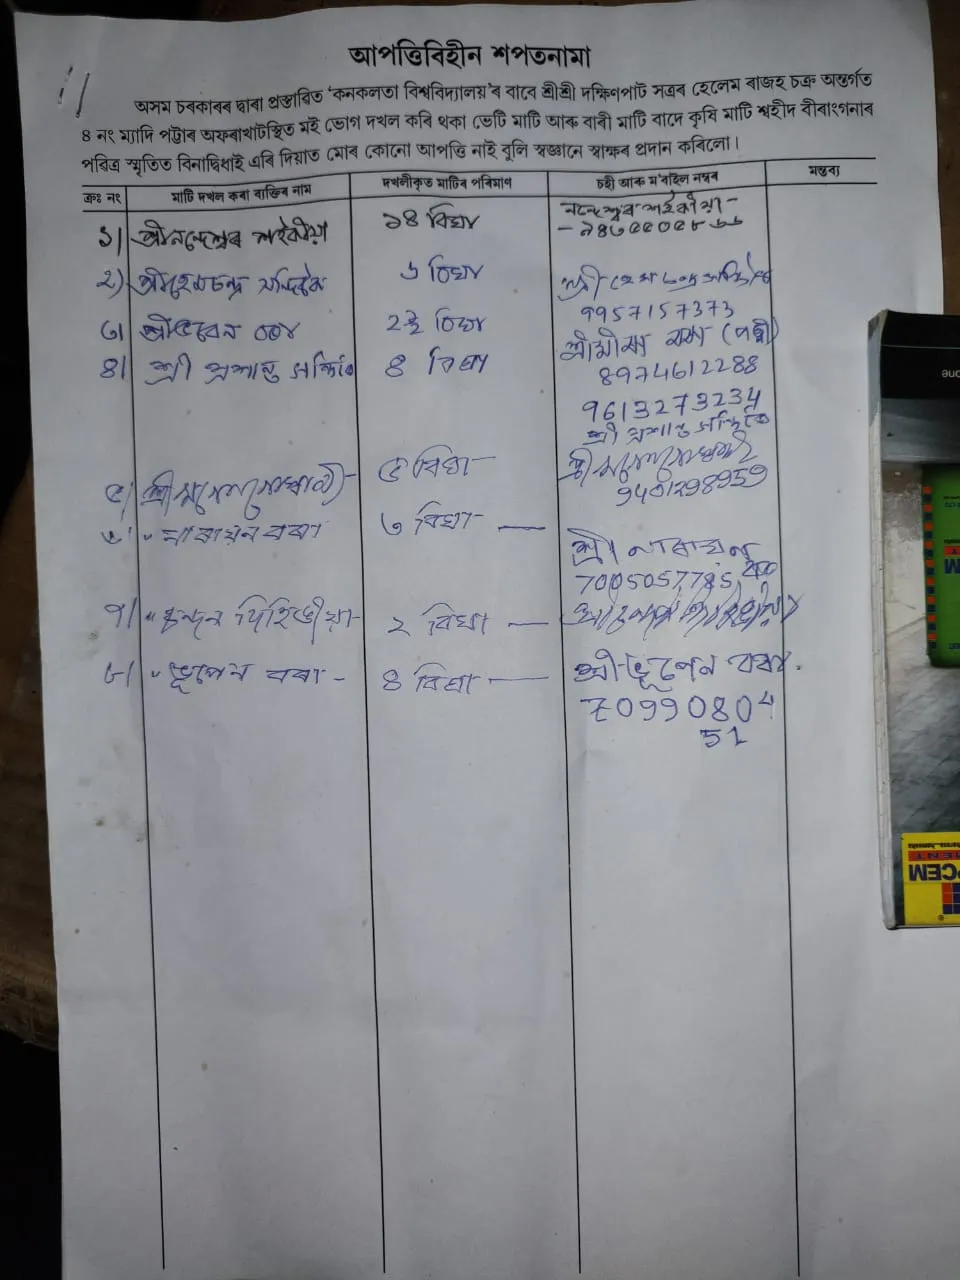 আপত্তিবিহীন শপতনামা
অসম চৰকাৰৰ দ্বাৰা প্ৰস্তাৱিত 'কনকলতা বিশ্ববিদ্যালয়'ৰ বাবে শ্ৰীশ্ৰী দক্ষিণপাট সত্ৰৰ হেলেম ৰাজহ চক্ৰ অন্তৰ্গত
৪ নং ম্যাদি পট্টাৰ অফৰাখাটস্থিত মই ভোগ দখল কৰি থকা ভেটি মাটি আৰু বাৰী মাটি বাদে কৃষি মাটি শ্বহীদ বীৰাংগনাৰ
পৱিত্ৰ স্মৃতিত বিনাদ্বিধাই এৰি দিয়াত মোৰ কোনো আপত্তি নাই বুলি স্বজ্ঞানে স্বাক্ষৰ প্ৰদান কৰিলো।
ক্ৰঃ নং মাটি দখল কৰা ব্যক্তিৰ নাম দখলীকৃত মাটিৰ পৰিমাণ চহী আৰু ম'বাইল নম্বৰ মন্তব্য
১| শ্ৰীনন্দেশ্বৰ শইকীয়া ১৪ বিঘা নন্দেশ্বৰ শইকীয়া-
২) শ্ৰীহেমচন্দ্ৰ সন্দিকৈ ৬ বিঘা শ্ৰী হেমচন্দ্ৰ সন্দিকৈ
9957157373
৩| শ্ৰী বিঘা শ্ৰী (পত্নী)
8974612288
৪| শ্ৰী প্ৰশান্ত সন্দিকৈ ৪ বিঘা 9613273234
শ্ৰী প্ৰশান্ত সন্দিকৈ
৫| শ্ৰী ৫ বিঘা- শ্ৰী
9401298959
৬| " নাৰায়ন বৰা ৩ বিঘা- শ্ৰী নাৰায়ন বৰা
7005057785
৭| " চন্দন - ২ বিঘা -
৮| " ভূপেন বৰা - ৪ বিঘা - শ্ৰী ভূপেন বৰা.
70990804
51